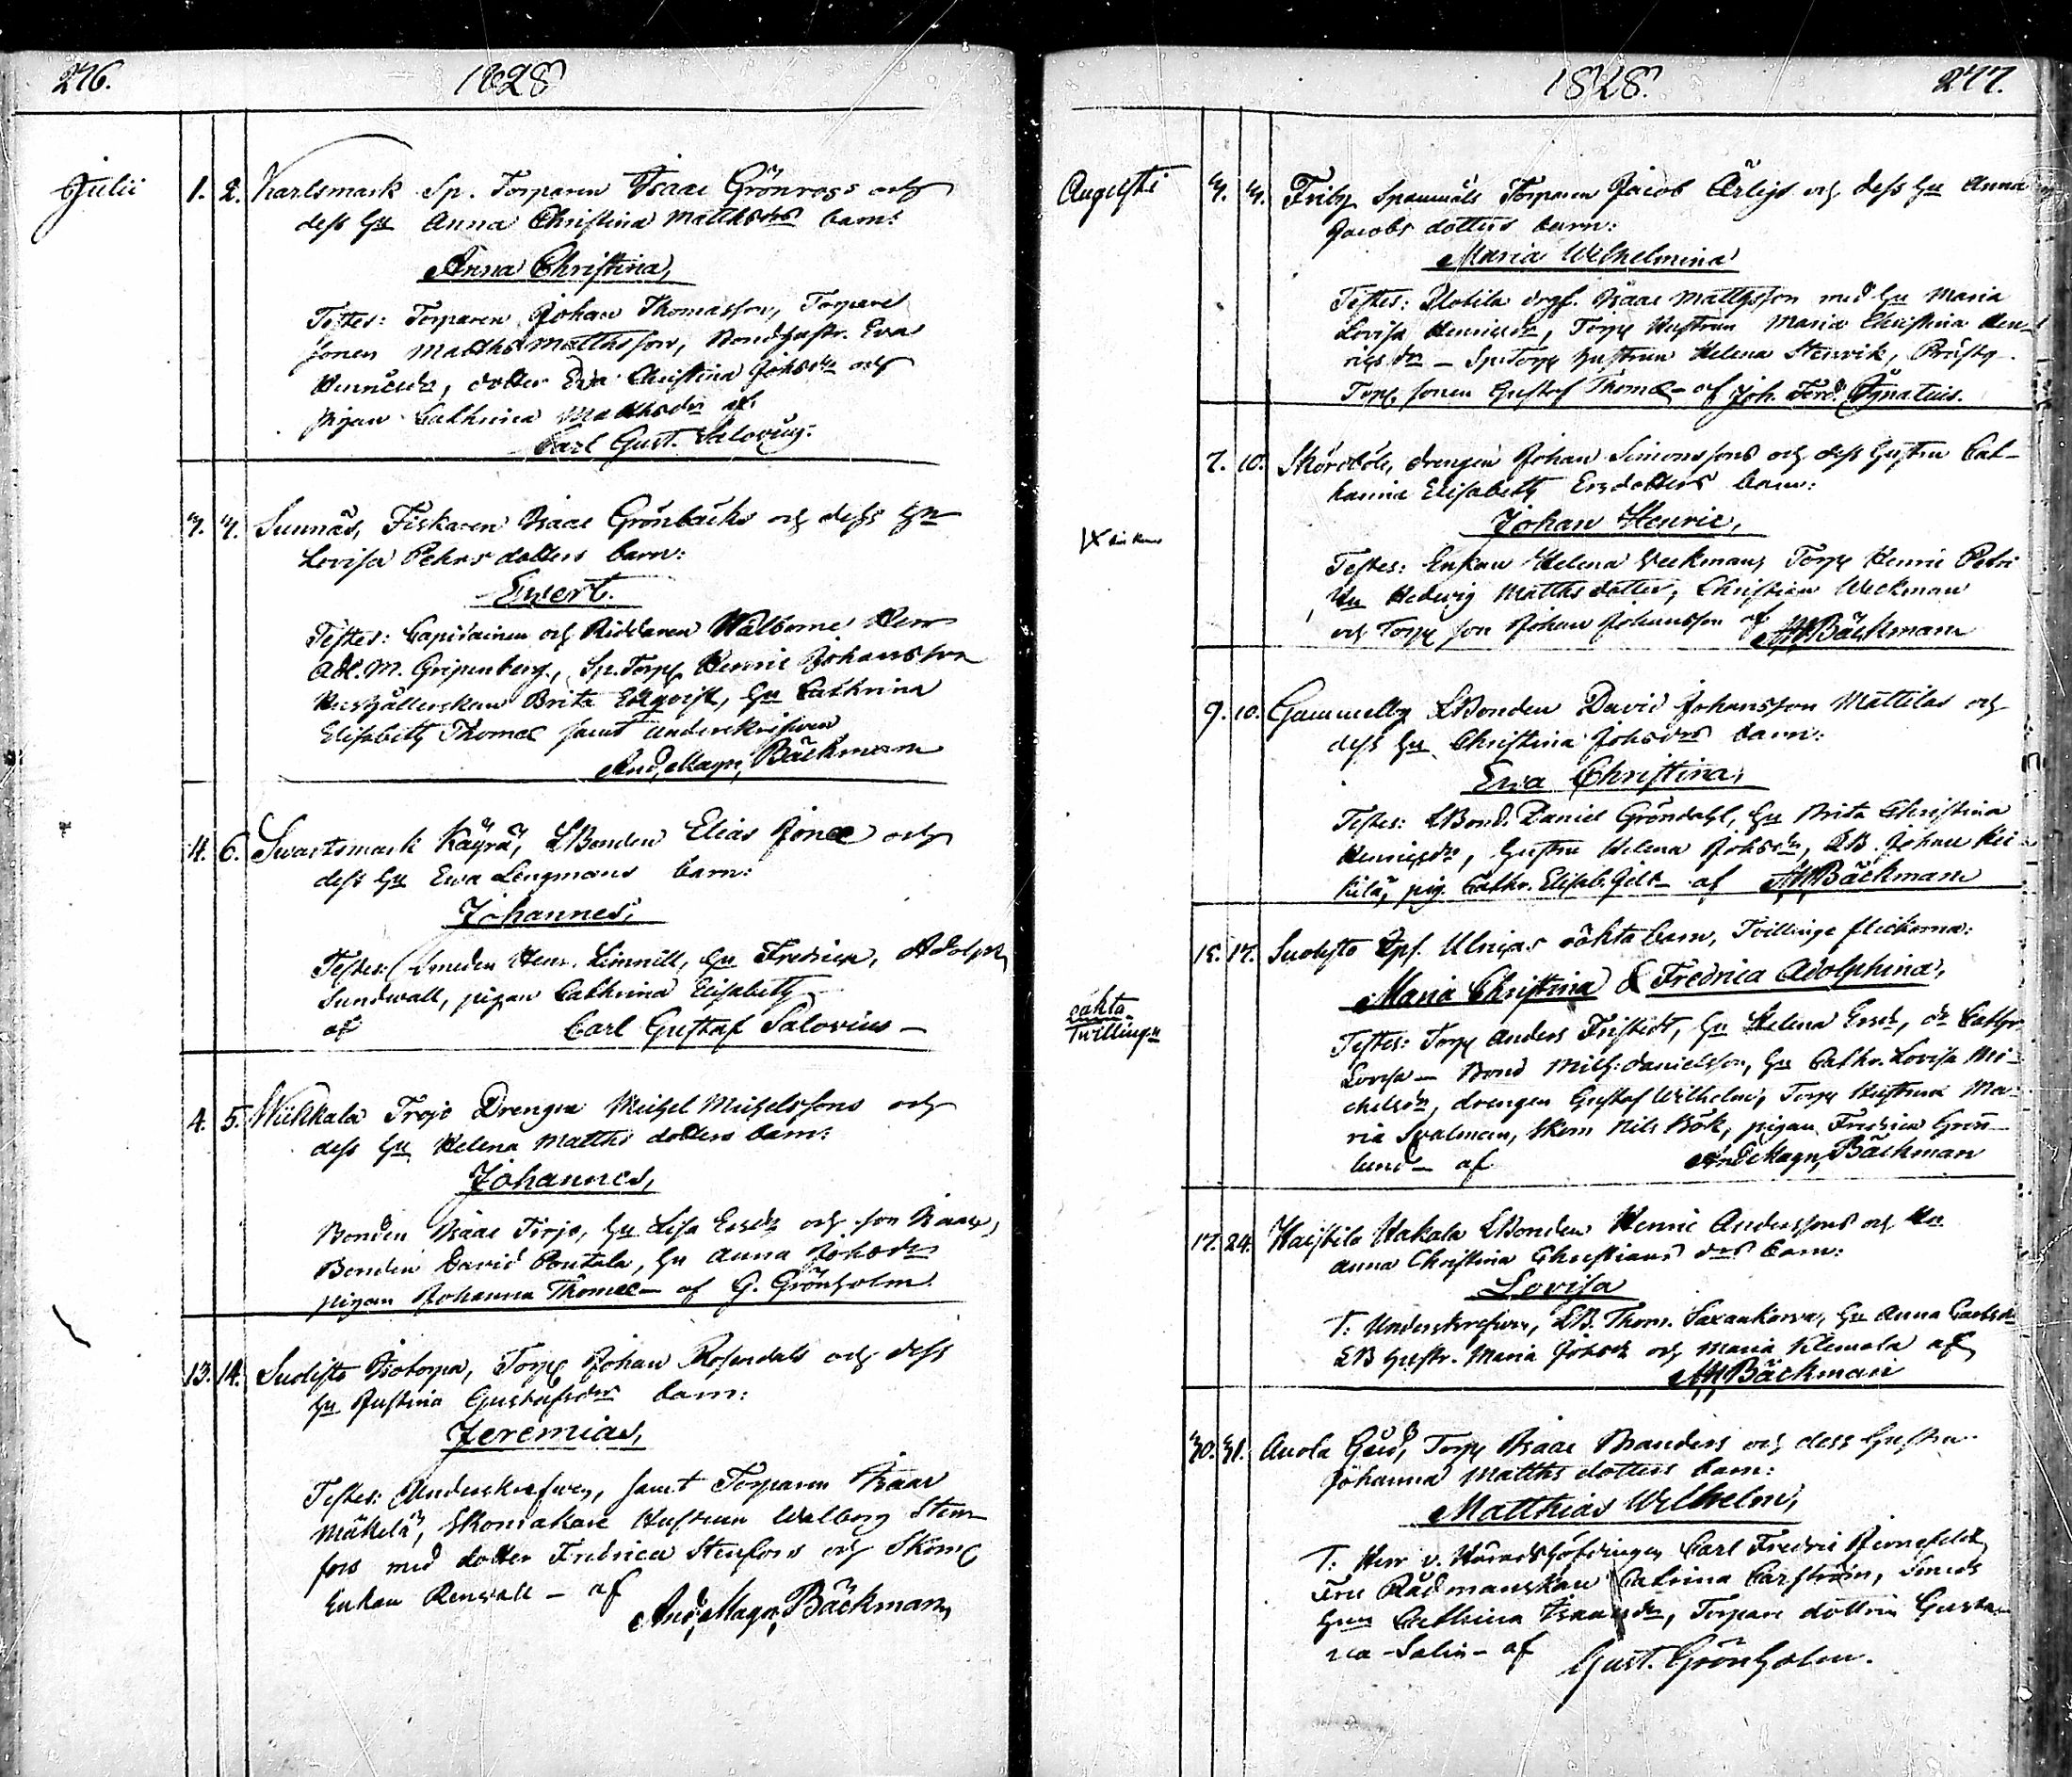 276.
1828
Julii
1. 2. Karlsmark Sp. Torparen Isaac Grönroos och
dess Hu Anna Christina Matthsdrs barn:
Anna Christina,
Testes: Torparen Johan Thomasson, Torpare
sonen Matths Matthsson, Bondhustr. Eva
Henricsdr, dotter Eva Christina Johsdr och
pigan Cathrina Matthsdr af
Carl Gust. Salovius.
3. 4. Sunnäs, Fiskaren Isaac Grönbäcks och dess Hu
Lovisa Pehrsdotters barn:
Ewert.
Testes: Capitainen och Riddaren Wälborne Herr
Ad. M. Gripenberg, Sp. Torp. Henric Johansson
Hushållerskan Brita Ekqvist, Hu Cathrina
Elisabeth Thomæ samt underskrifven
And. Magn. Bäckman
4. 6. Swartsmark Käyrä, LBonden Elias Jonæ och
dess Hu Ewa Lengmans barn:
Johannes,
Testes: Smeden Henr. Limnell, Hu Fredrica, Adolph
Sundwall, pigan Cathrina Elisabeth
af Carl Gustaf Salovius
4. 5. Wiikkala Trojo Drengen Michel Michelssons och
dess Hu Helena Matths dotters barn:
Johannes,
Bonden Isaac Tirjo, Hu Lisa Ersdr och son Isaac,
Bonden David Pontela, Hu Anna Johsdr
pigan Johanna Thomæ af G. Grönholm.
13. 14. Suolisto Isotorpa, Torp. Johan Rosendals och dess
Hu Justina Gustafsdrs barn:
Jeremias,
Testes: Underskrefven, samt Torparen Isaac
Mäkelä, Skomakare Hustrun Walborg Sten-
fors med dotter Fredrica Stenfors och Skom.
Enkan Renvall af And. Magn. Bäckman
1828.
277.
Augusti
3. 3. Friby Spannmåls Torparen Jacob Ärligs och dess Hu Anna
Jacobs dotters barn:
Maria Wilhelmina
Testes: Isaac Mattsson med Hu Maria
Lovisa Henricsdr, Torp. Hustrun Maria Christina Hen-
ricsdr Sp. Torp. hustrun Helena Stenvik,
Torp. sonen Gustaf Thomæ af Joh. Ferd. Ignatius.
7. 10. Skördböle, drengen Johan Simonssons och dess Hustru Cat-
harina Elisabeth Ersdotters barn:
Johan Henric,
Testes: Enkan Helena Weckman, Torp. Henric Petri
Hu Hedwig Matths dotter, Christian Weckman
och Torp. son Johan Johansson af AMBäckman
9. 10. Gammelby LBonden David Johansson Mattilas och
dess Hu Christina Johsdrs barn:
Ewa Christina,
Testes: LBond. Daniel Gröndahl, Hu Brita Christina
Henricsdr, Hustru Helena Johsdr, LB. Johan Hei-
kilä, pig. Cathr. Elisab. af AMBäckman
oäkta
Twillingar
15. 17. Suolisto Ulricas oäkta barn, Tvillinge flickorna:
Maria Christina & Fredrica Adolphina,
Testes: Torp. Anders Fristedt, Hu Helena Ersdr, dr Cathr.
Lovisa Bond Mich. Danielsson, Hu Cathr. Lovisa Mi-
chelsdr, drengen Gustaf Wilhelm, Torp. Hustrun Ma-
ria Svalman, Skom Nils Bök, pigan Fredrica Grön-
lund af And Magn. Bäckman
17. 24. Haistila Hakala LBonden Henric Anderssons och Hu
Anna Christina Christians drs barn:
Lovisa
T: Underskrefven, LB. Thom. Saxankorva, Hu Anna Carlsdr
LB Hustr. Maria Johsdr och Maria Klemola af
AMBäckman
30. 31. Anola Gård, Torp. Isaac Branders och dess Hustru
Johanna Matths dotters barn:
Matthias Wilhelm,
T: Herr v. Häradshöfdingen Carl Fredric Järnefelt,
Fru Rådmanskan Catrina Carström, Smeds
Hu Cathrina Isaacsdr, Torpare dottren Gusta-
va Salin af Gust. Grönholm.